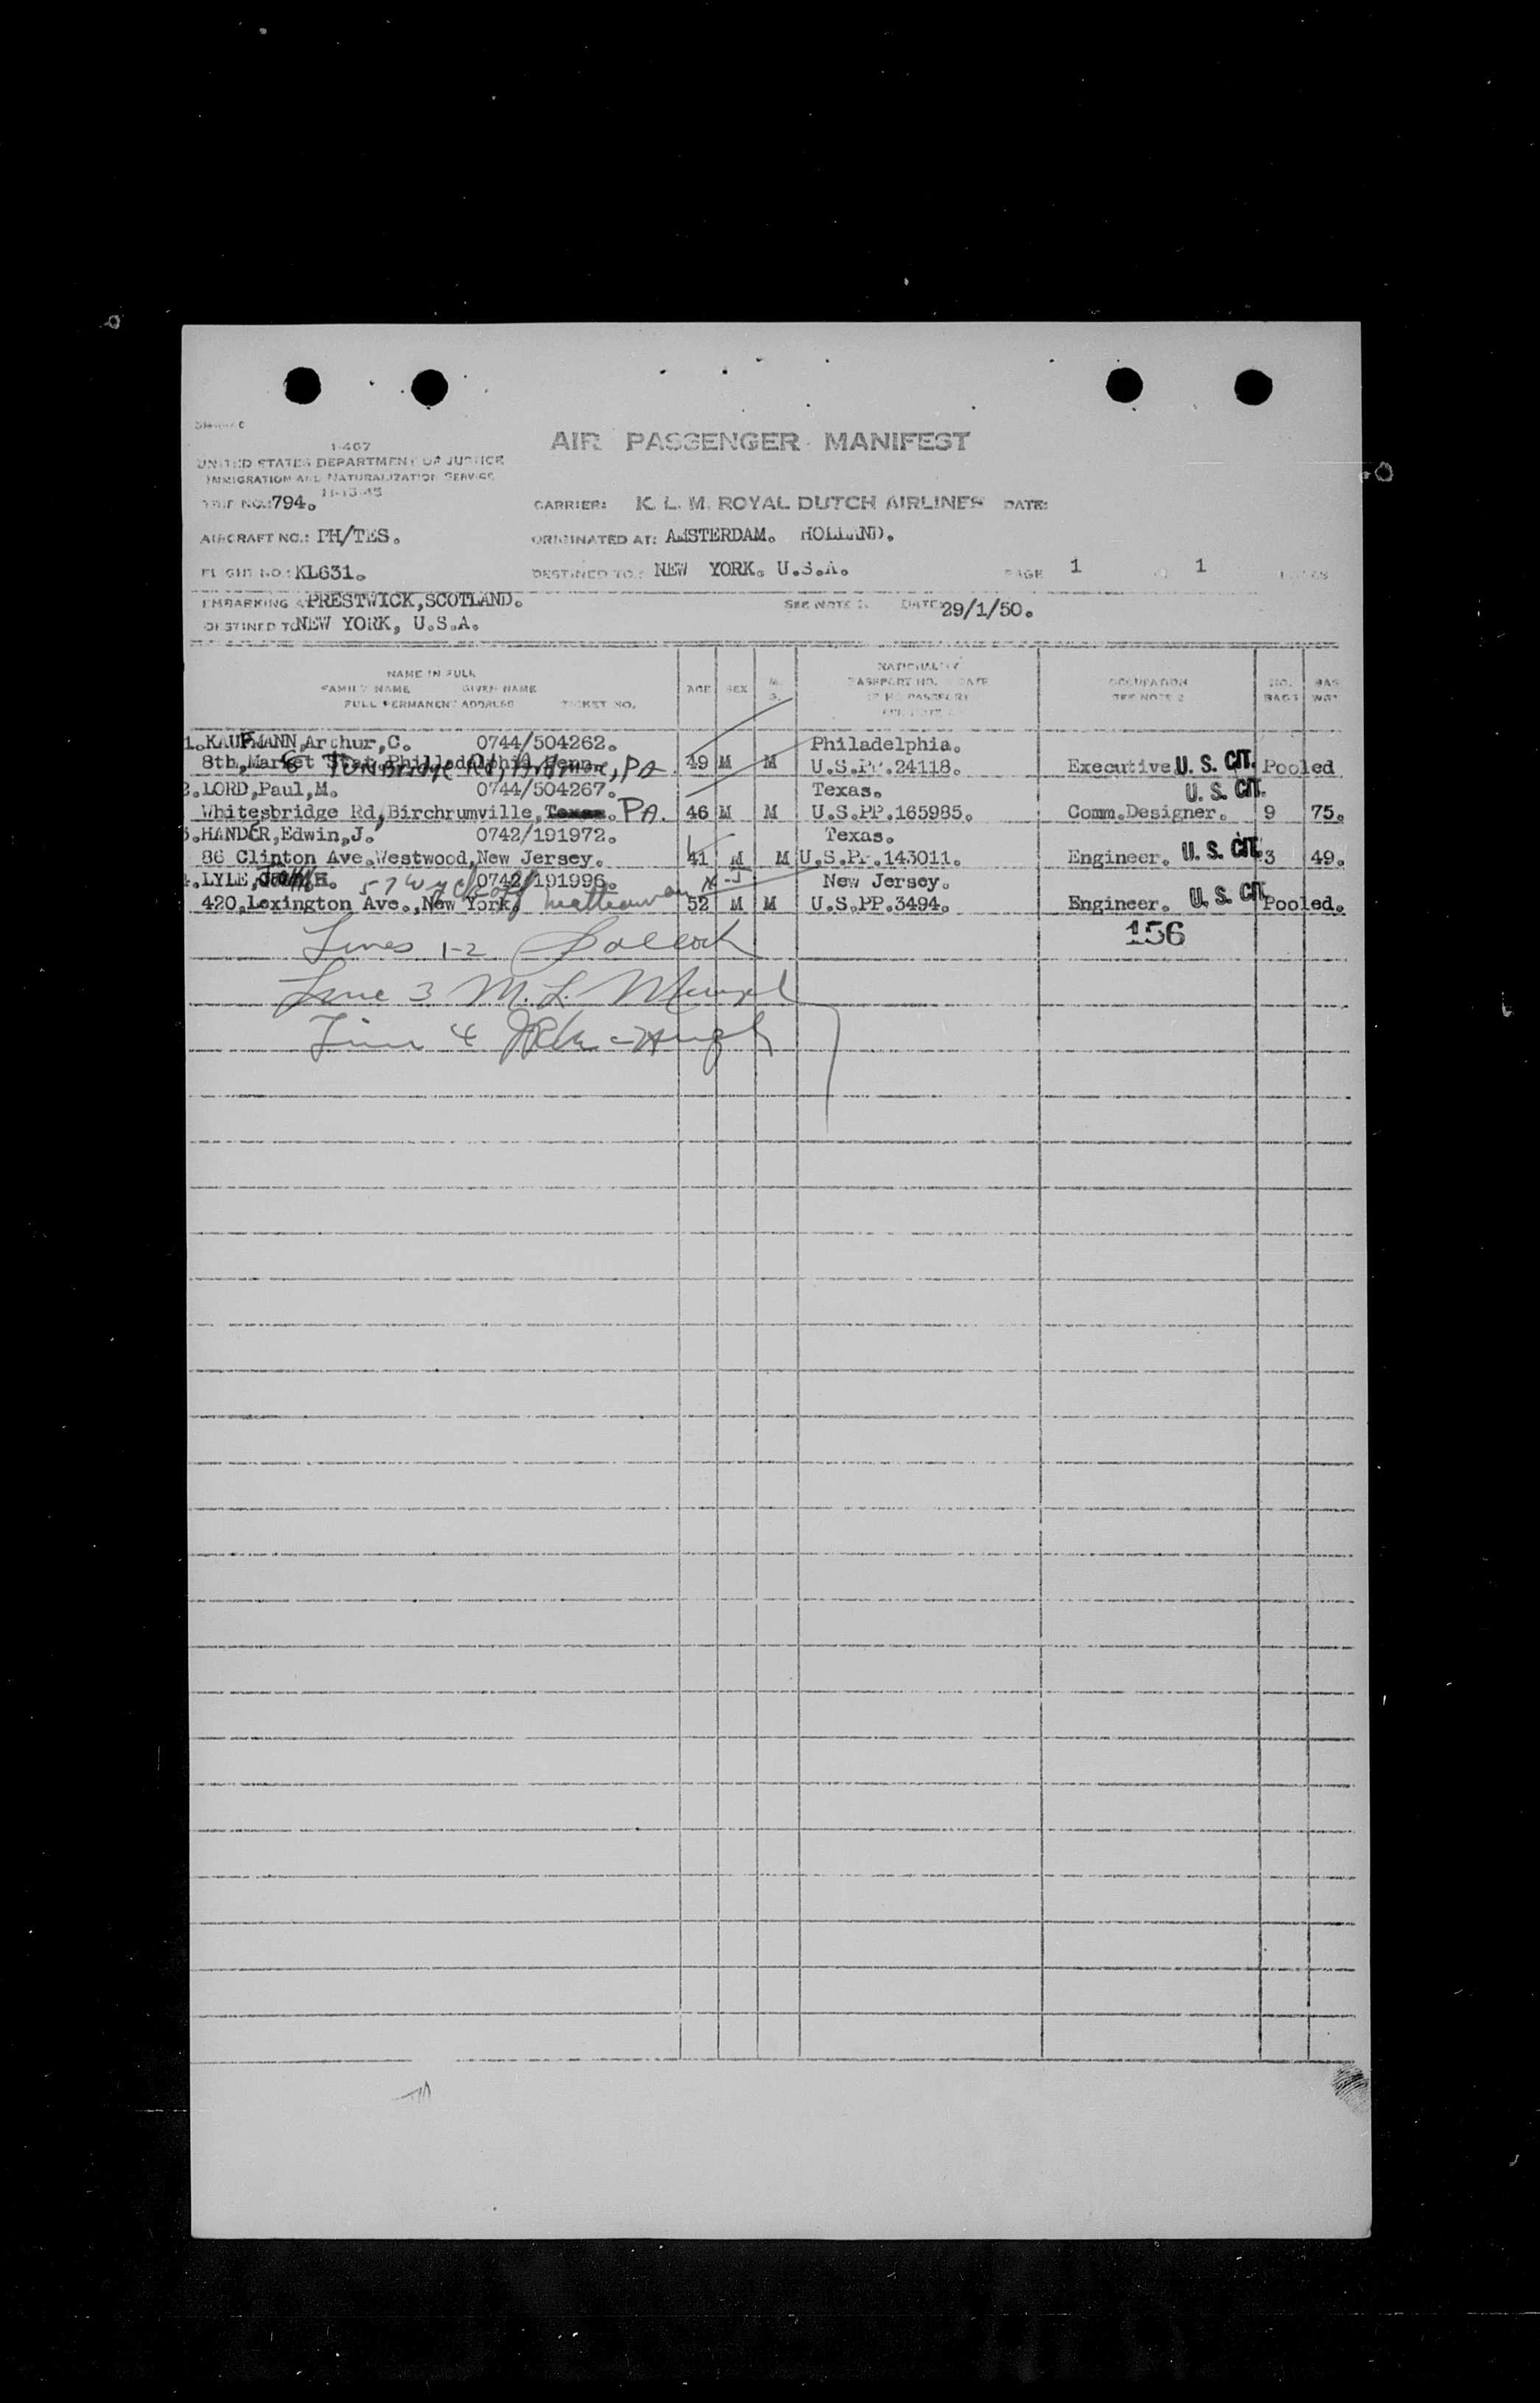 AIR PASSENGER MANIFEST
I-467
UNITED STATES DEPARTMENT OF JUSTICE
IMMIGRATION AND NATURALIZATION SERVICE
11-13-45
TRIP NO.: 794.
CARRIER: K. L. M. ROYAL DUTCH AIRLINES DATE:
AIRCRAFT NO.: PH/TES. ORIGINATED AT: AMSTERDAM. HOLLAND.
FLIGHT NO.: KL631. DESTINED TO: NEW YORK. U.S.A. PAGE 1 1
EMBARKING PRESTWICK,SCOTLAND. SEE NOTE DATE: 29/1/50.
DESTINED TO NEW YORK, U.S.A.
NAME IN FULL
FAMILY NAME GIVEN NAME
FULL PERMANENT ADDRESS TICKET NO.
AGE SEX M. S.
NATIONALITY
PASSPORT NO.
IF NO PASSPORT
OCCUPATION
SEE NOTE 2
NO. BAGS
BAG WGT
1.KAUFMANN,Arthur,C. 0744/504262. Philadelphia.
8th,Market Philladelphia Penn. 49 M M U.S.PP.24118. Executive U. S. CIT. Pooled
6 Tunbridge Rd, Ardmore, PA
2.LORD,Paul,M. 0744/504267. Texas. U. S. CIT.
Whitesbridge Rd,Birchrumville,Texas. PA. 46 M M U.S.PP.165985. Comm.Designer. 9 75.
3.HANDER,Edwin,J. 0742/191972. Texas.
86 Clinton Ave.Westwood,New Jersey. 41 M M U.S.PP.143011. Engineer. U. S. CIT. 3 49.
4.LYLE, H. 0742/191996. New Jersey.
57 Wyckoff Matteawan N-J
420,Lexington Ave.,New York. 52 M M U.S.PP.3494. Engineer. U. S. CIT. Pooled.
156
Lines 1-2
Line 3 M. L.
Line 4